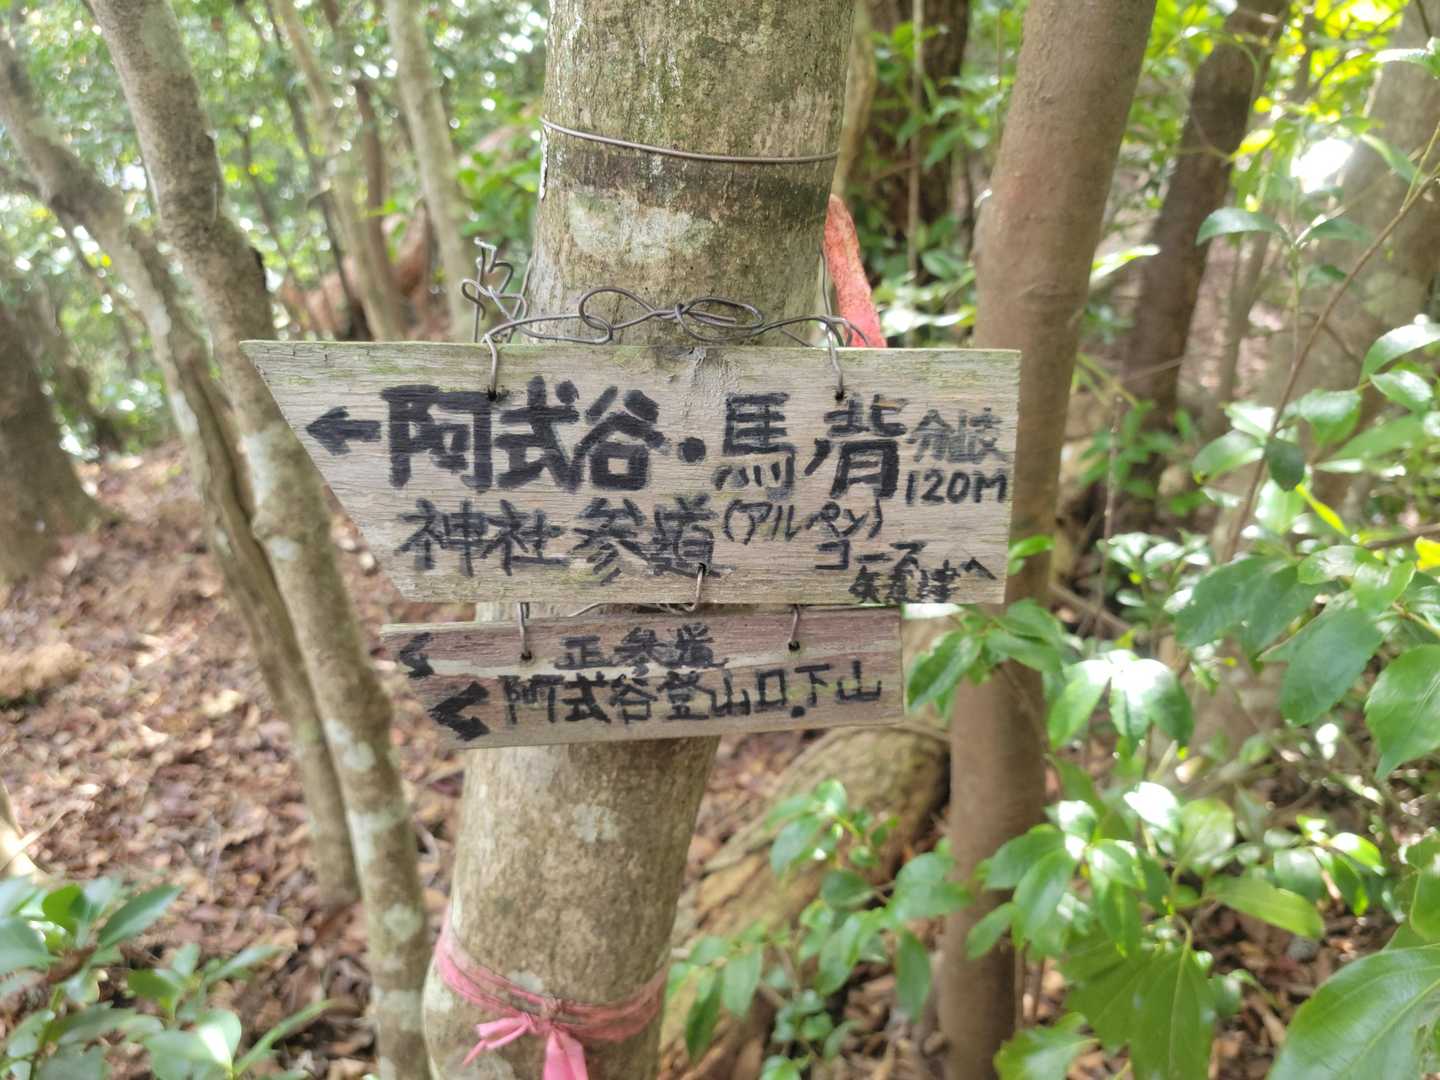 ←阿式谷・馬背分岐
120M
神社参道(アルペン)
コース
矢竜津へ
<正参道
<阿式谷登山口.下山